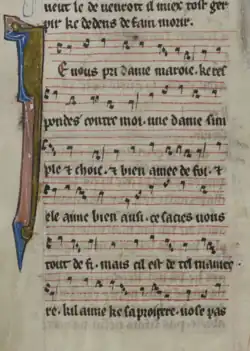 neut le de uenroit il miex tost ger
pir ke dedens de fain morir.
Je uous pri dame maroie. ke res
pondes contre moi. une dame sim
ple & choie. & bien amee de foi. &
ele aime bien ausi. ce sacies uous
tout de fi. mais cil est de tel manie
re. kil aime ke sa proiere. nose pas